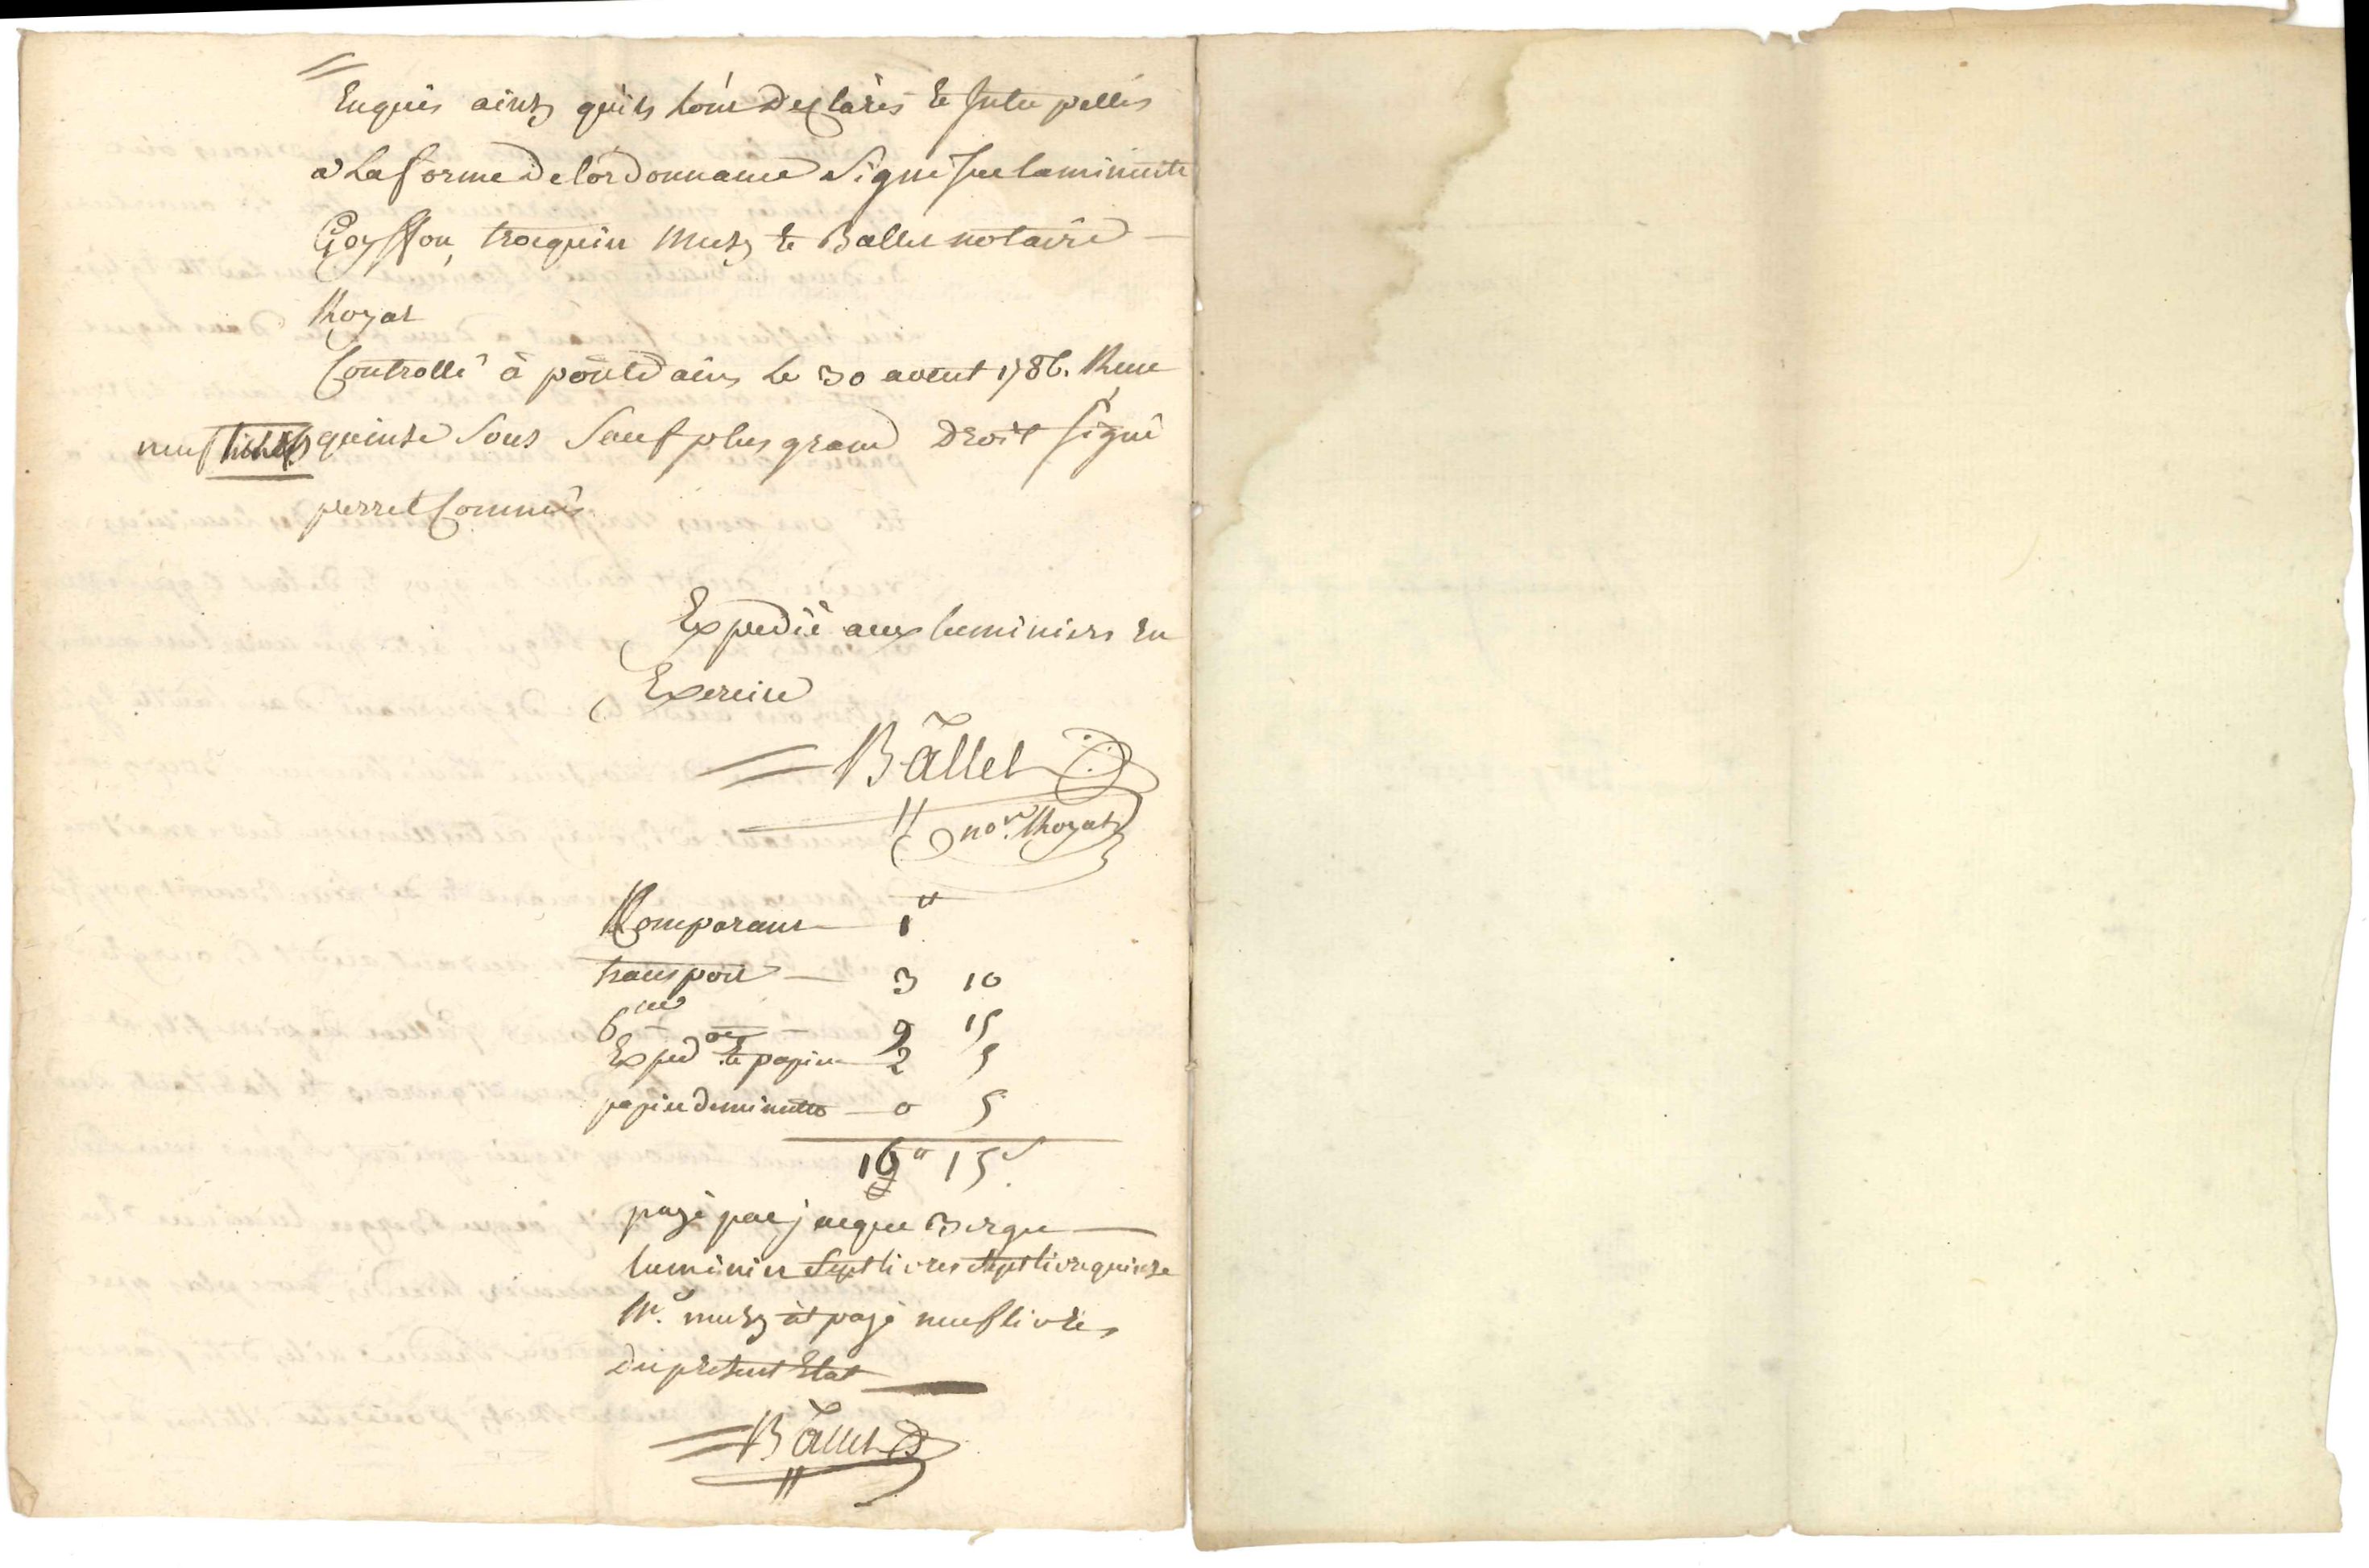 Enquis ainsy quils l'ont declarés et Interpellés
a La forme de lordonnance Signé Sur la minute
Goyffon, trocquin Musy et Ballet notaire
Royal
Controllé à pontdains le 30 aoeut 1786. Reçu
neuf livres quinse Sous Sauf plus grand Droit Signé
perret Commis
Expedié aux luminiers En
Exercice
Ballet
nore. Royal
Comparant 1
transport 3 10
Cuë 9 15
Expedon et papier 2 5
papier de minutte 0 5
16 15s
payé par jacque Berger
luminier Sept livres quinse
Mr. musy at payé neuf livres
du présent Etat
Ballet